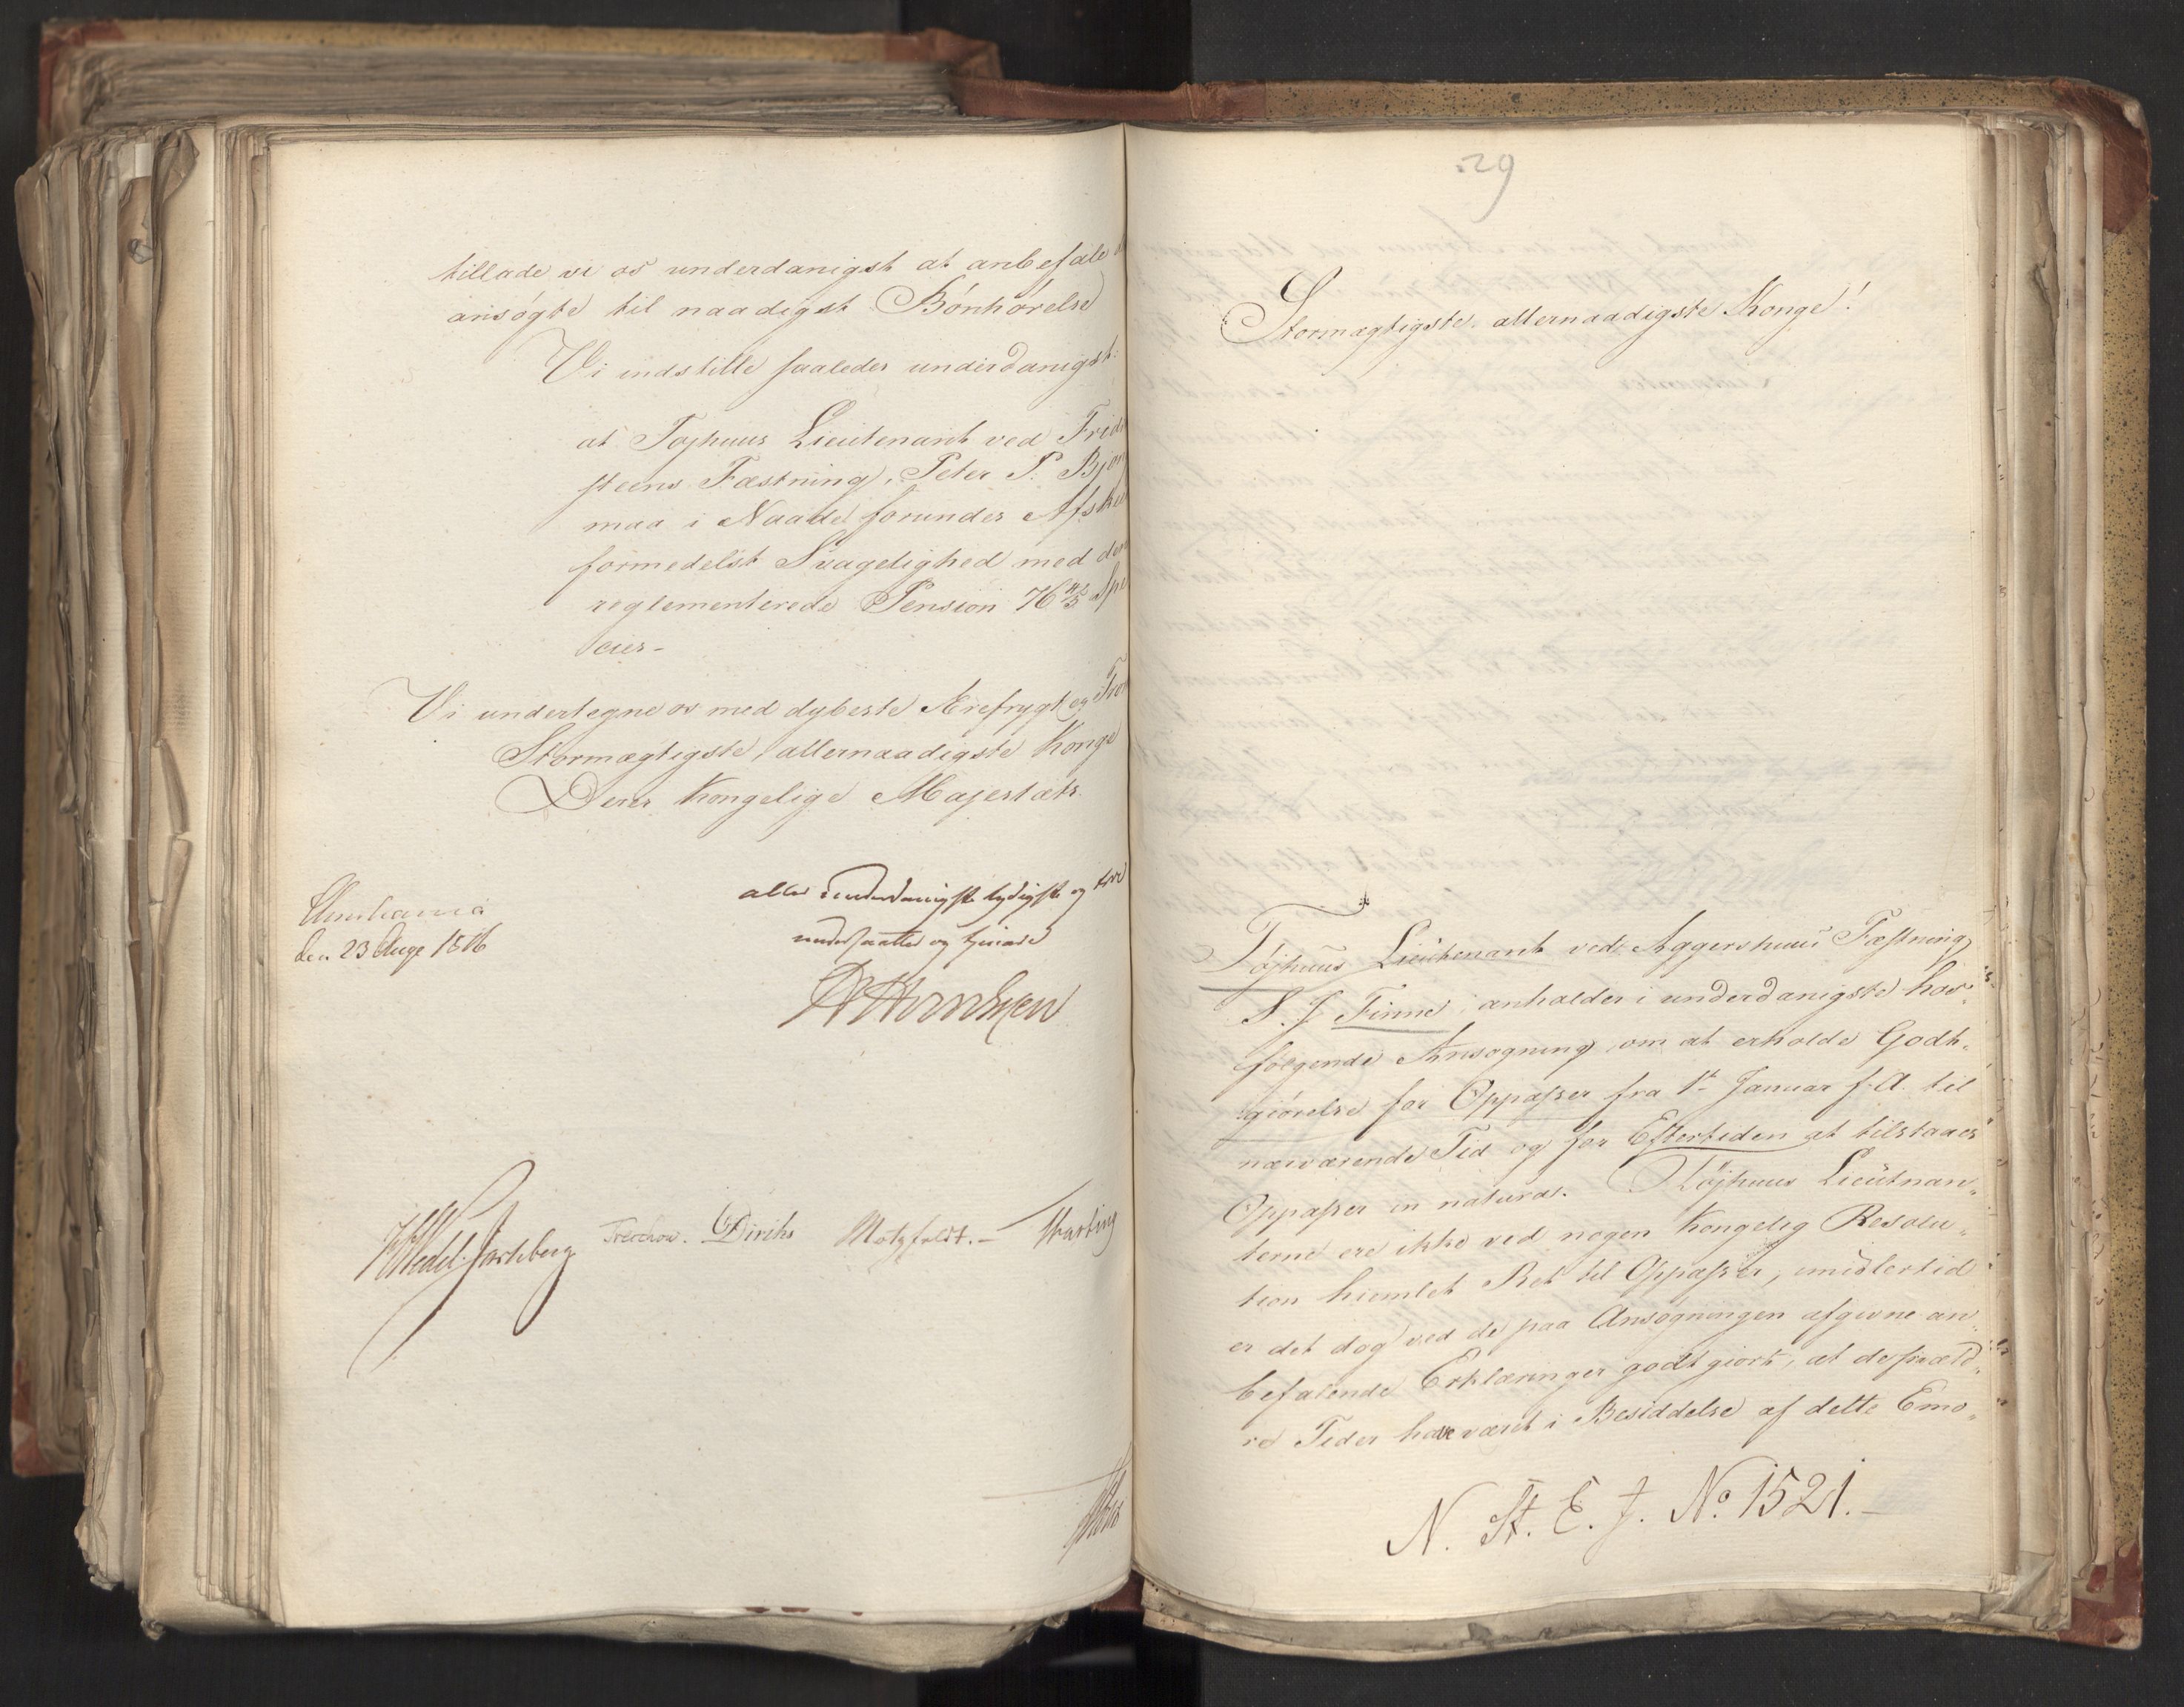 tillade vi os underdanigst at anbefale
ansøgte til naadigst Bønhørelse
Vi indstille saaledes underdanigst:
at Tøjhuus Lieutenant ved Frid
steens Fæstning, Peter P. Bjør
maa i Naade forundes Afskee
formedelst Svagelighed med den
reglementerede Pension 76 4/5 Spe
cier-
Vi undertegne os med dybeste Ærefrygt og Tro
Stormægtigste, allernaadigste Konge
Deres Kongelige Majestæts
Christiania
den 23 Aug 1816
aller underdanigste lydigste og troe
undersaatter og tjenere
HWedel-Jarlsberg Treschow. Diriks Motzfeldt. -
29
Stormægtigste, allernaadigste Konge!
Tøjhuus Lieutenant ved Aggershuus Fæstning
S. J Finne anholder i underdanigste hos-
følgende Ansøgning om at erholde Godt-
giørelse for Oppasser fra 1ste Januar f: A. til
nærværende Tid og for Eftertiden at tilstaaes
Oppasser in natura. Tøjhuus Lieutnan-
terne ere ikke ved nogen Kongelig Resolu-
tion hiemlet Ret til Oppasser, imidlertid
er det dog ved de paa Ansøgningen afgivne an-
befalende Erklæringer godtgiort, at de fra æld-
re Tider have været i Besiddelse af dette Emo-
N. St. E. J. No. 1521. -